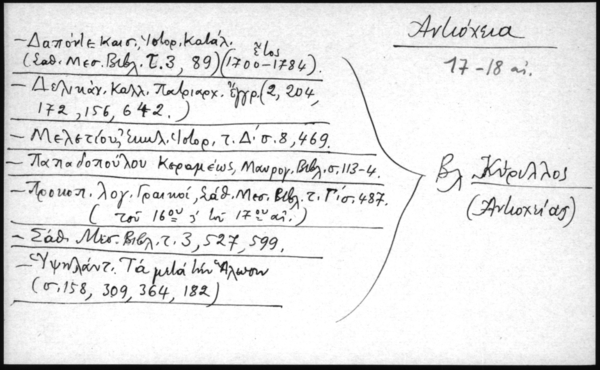 Αντιόχεια
17-18 αι.
– Δαπόντε Καισ., Ιστορ. Κατάλ.
(Σάθ. Μεσ. Βιβλ. τ. 3, 89) (ἔτος 1700-1784).
– Δελικάν. Καλλ. Πατριαρχ. Ἔγγρ. (2, 204,
172, 156, 642.)
– Μελετίου, Ἐκκλ. Ιστορ. τ. Δ΄ σ. 8, 469.
– Παπαδοπούλου Κεραμέως, Μαυρογ. Βιβλ. σ. 113-4.
– Προκοπ. λογ. Γραικοί, Σάθ. Μεσ. Βιβλ. τ. Γ΄ σ. 487.
(τοῦ 16ου 17ου αἰ.)
– Σάθ. Μεσ. Βιβλ. τ. 3, 527, 599.
– Ὑψηλάντ. Τά μετά τήν Ἅλωσιν
(σ. 158, 309, 364, 182)
Βλ Κύριλλος
(Αντιοχείας)